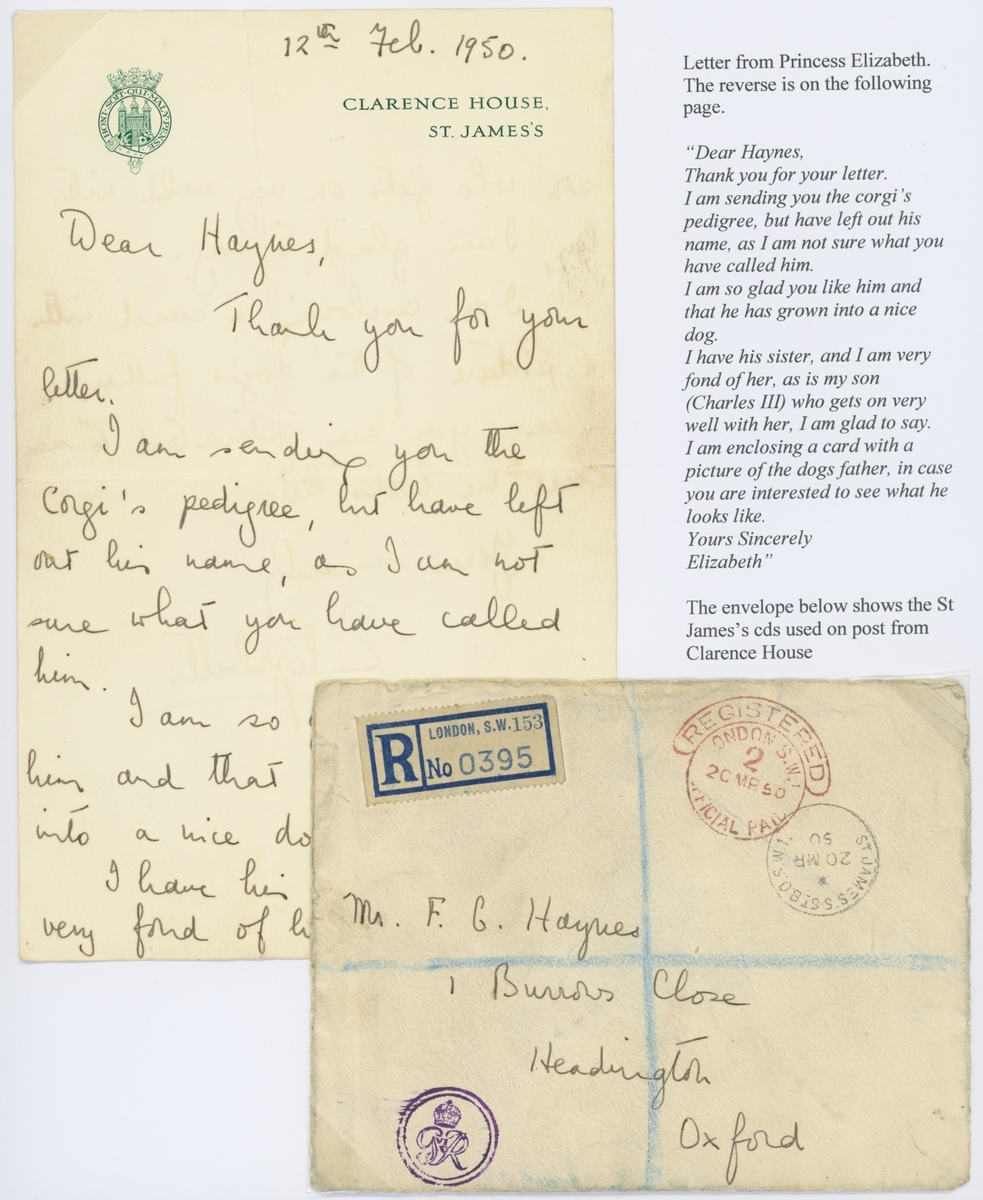 12th Feb. 1950.
HONI·SOIT·QUI·MAL·Y·PENSE
CLARENCE HOUSE,
ST. JAMES'S
Dear Haynes,
Thank you for your
letter.
I am sending you the
Corgi's pedigree, but have left
out his name, as I am not
sure what you have called
him.
I am so
him and that
into a nice do
I have his
very fond of h
Letter from Princess Elizabeth.
The reverse is on the following
page.
“Dear Haynes,
Thank you for your letter.
I am sending you the corgi’s
pedigree, but have left out his
name, as I am not sure what you
have called him.
I am so glad you like him and
that he has grown into a nice
dog.
I have his sister, and I am very
fond of her, as is my son
(Charles III) who gets on very
well with her, I am glad to say.
I am enclosing a card with a
picture of the dogs father, in case
you are interested to see what he
looks like.
Yours Sincerely
Elizabeth”
The envelope below shows the St
James’s cds used on post from
Clarence House
R
LONDON, S.W.153
No 0395
REGISTERED
LONDON S.W.1
2
20 MR 50
OFFICIAL PAID
ST JAMES'S.ST.B.O.S.W.1.
20 MR
50
Mr. F. G. Haynes
1 Burrows Close
Headington
Oxford
GR